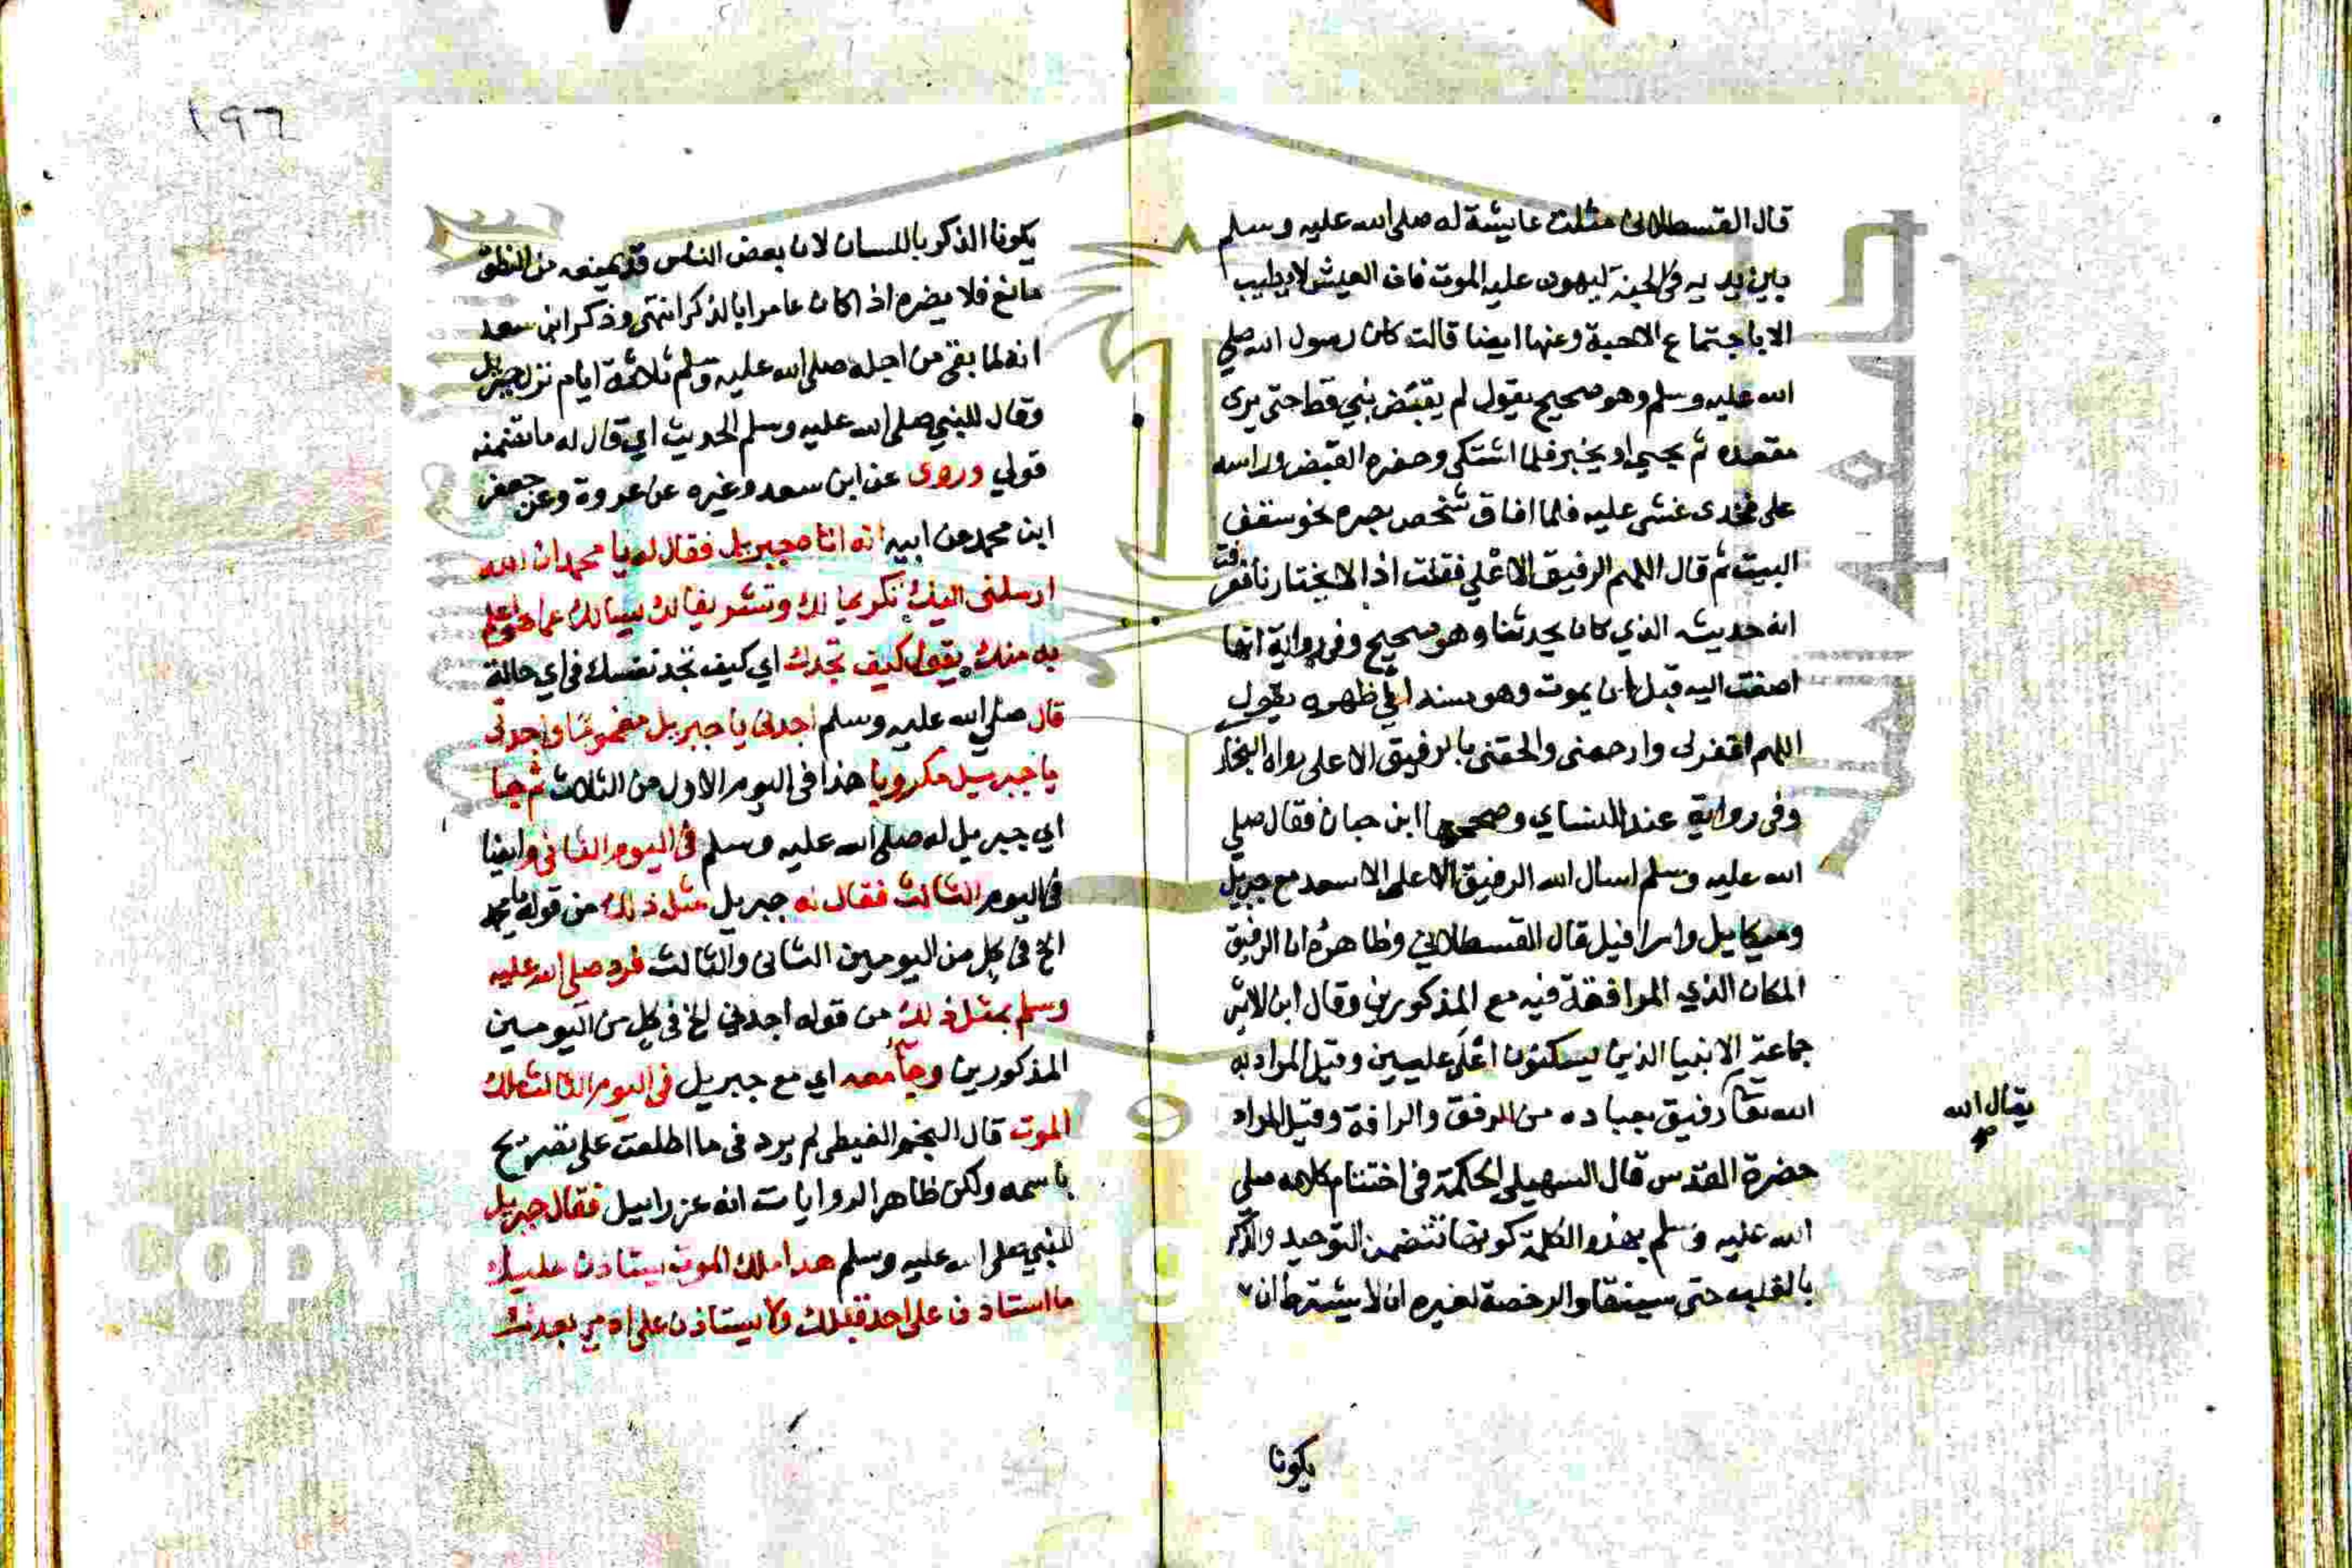 قال القسطلاني مثلت عايشة له صلى الله عليه وسلم
بين يديه في الجنة ليهون عليه الموت فان العيش لا يطيب
الا باجتماع الاحبة وعنها ايضا قالت كان رسول الله صلى
الله عليه وسلم وهو صحيح يقول لم يقبض نبي قط حتى يرى
مقعده ثم يحيى او يخير فلما اشتكى وحضره القبض وراسه
على فخذى غشى عليه فلما افاق شخص بصره نحو سقف
البيت ثم قال اللهم الرفيق الاعلى فقلت اذا لا يختارنا فعرفت
انه حديثه الذي كان يحدثنا وهو صحيح وفى رواية انها
اصغت اليه قبل ان يموت وهو مسند الي ظهره يقول
اللهم اغفرلى وارحمنى والحقنى بالرفيق الاعلى رواه البخار
وفى رواية عند النساي وصححها ابن حبان فقال صلى
الله عليه وسلم اسال الله الرفيق الاعلى الاسعد مع جبريل
وميكاييل واسرافيل قال القسطلاني وظاهره ان الرفيق
المكان الذي الموافقة فيه مع المذكورين وقال ابن الاثير
جماعة الانبيا الذين يسكنون اعلى عليين وقيل المراد به
الله تعا رفيق بعباده من الرفق والرافة وقيل المراد
يقال الله
صح
حضرة القدس قال السهيلي الحكمة فى اختتام كلامه صلى
الله عليه وسلم بهذه الكلمة كونها تتضمن التوحيد والذكر
بالقلب حتى يستفاد الرخصة لغيره ان لا يشترط ان
يكونا
١٩٦
يكونا الذكر باللسان لان بعض الناس قد يمنعه من النطق
مانع فلا يضره اذا كان عامرا بالذكر انتهى وذكر ابن سعد
انه لما بقى من اجله صلى الله عليه وسلم ثلاثة ايام نزل جبريل
وقال للنبي صلى الله عليه وسلم الحديث اي قال له ما تضمنه
قولي وروى عن ابن سعد وغيره عن عروة وعن جعفر
ابن محمد عن ابيه انه اتاه جبريل فقال له يا محمد ان الله
ارسلنى اليك تكريما لك وتشريفا لك يسالك عما هو اعلم
به منك يقول كيف تجدك اي كيف تجد نفسك فى اي حالة
قال صلى الله عليه وسلم اجدنى يا جبريل مغموما واجدنى
يا جبريل مكروبا هذا فى اليوم الاول من الثلاث ثم جا
اي جبريل له صلى الله عليه وسلم فى اليوم الثانى وايضا
فى اليوم الثالث فقال له جبريل مثل ذلك من قوله يا محمد
الخ فى كل من اليومين الثانى والثالث فرد صلى الله عليه
وسلم بمثل ذلك من قوله اجدني الخ فى كل من اليومين
المذكورين وجآء معه اي مع جبريل فى اليوم الثالث ملك
الموت قال النجم الغيطى لم يرد فى ما اطلعت على تصريح
باسمه ولكن ظاهر الروايات انه عزراييل فقال جبريل
للنبي صلى الله عليه وسلم هذا ملك الموت يستاذن عليك
ما استاذن على احد قبلك ولا يستاذن على ادمي بعدك